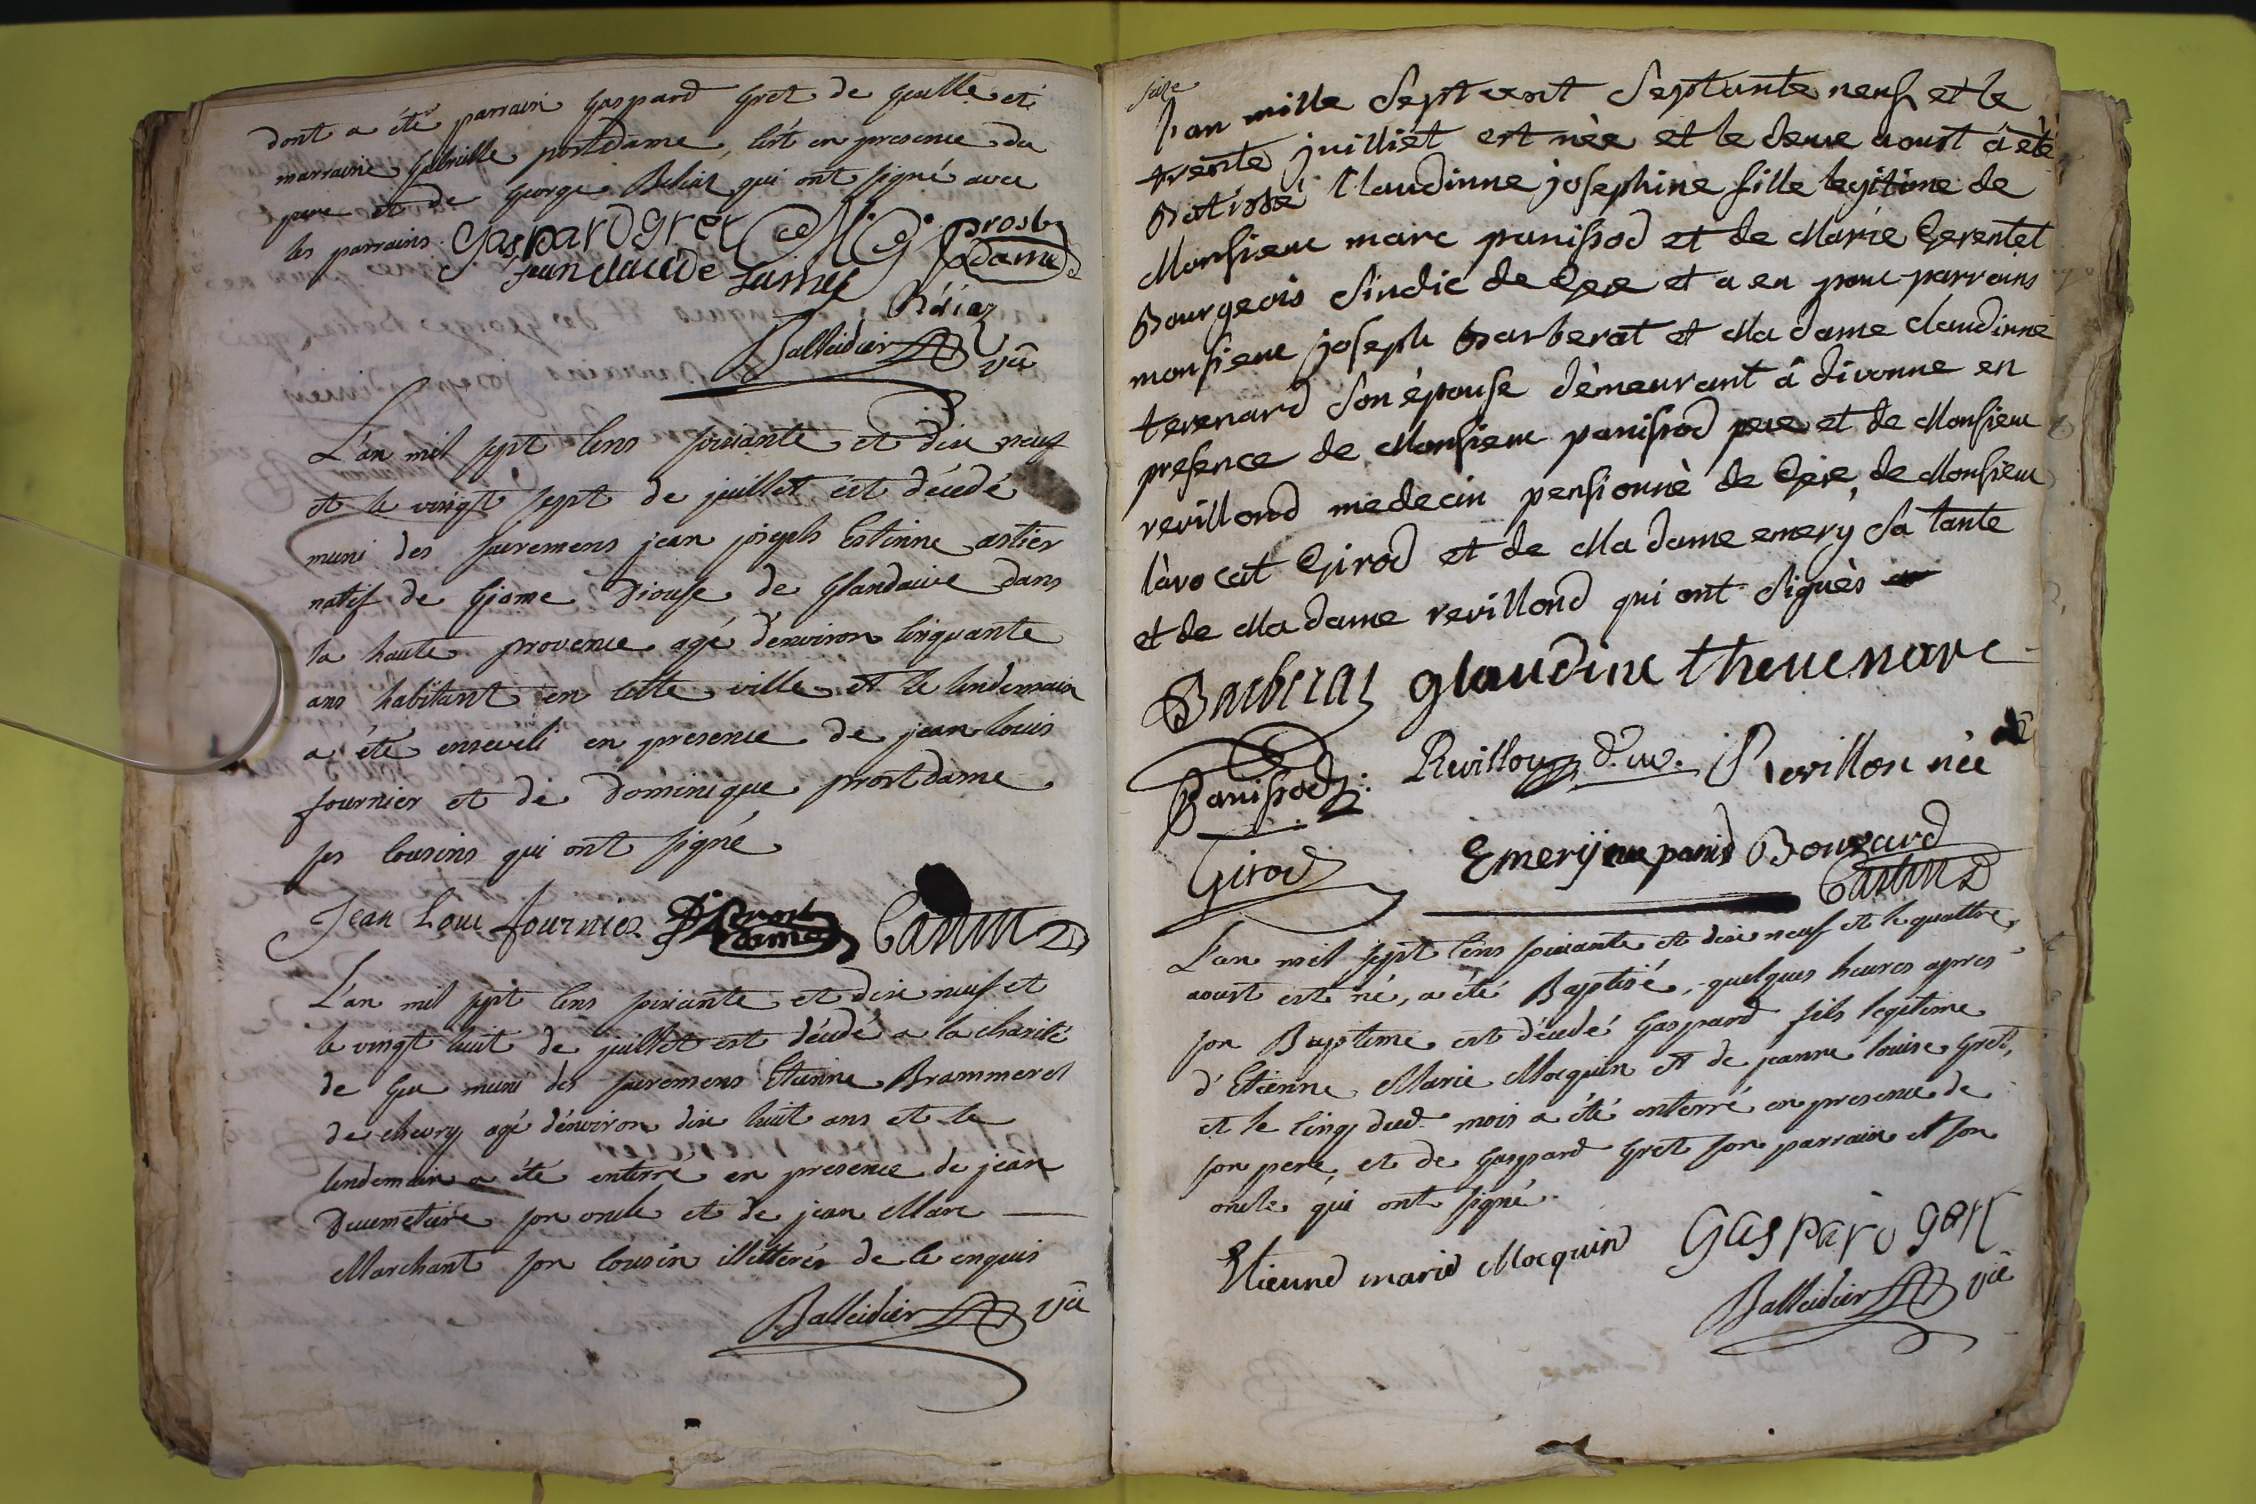 dont a été parrain Gaspard Gret de Gueille et
marraine Gabrielle prostdame, c'est en presence du
pere et de George Beliat qui ont signé avec
les parrains. Gaspard gret
prost
dame
jean claude
Balleidier vic
L'an mil sept cens soixante et dix neuf
et le vingt sept de juillet est décédé
muni des sacremens jean joseph Estinne astier
natif de Giome Diouse de Glandaive dans
la haute provence agé d'environ cinquante
ans habitant en cette ville et le lendemain
a été enseveli en presence de jean louis
fournier et de Dominique prostdame
ses cousins qui ont signé
Jean Loui fournier Prost dame Castin
L'an mil sept cens soixante et dix neuf et
le vingt huit de juillet est décédé a la charité
de Gex muni des sacremens Etienne Brammerel
de chevry agé d'environ dix huit ans et le
lendemain a été enterré en presence de jean
Ducimetiere son oncle et de jean Marc
Marchant son cousin illitterés de ce enquis
Balleidier vic
suite
l'an mille Sept cent Septante neuf et le
trente juilliet est nèe et le deux aoust a été
Batisée Claudinne josephine fille legitime de
Monsieur marc panissod et de Marie Gerentet
Bourgeois Sindic de Gex et a eu pour parrains
monsieur joseph Barberat et Madame claudinne
tevenard Son épouse dèmeurant â divonne en
presence de Monsieur panissod pere et de Monsieur
revillond medecin pensionnè de Gex de Monsieur
làvocat Girod et de Madame emery Sa tante
et de Madame revillond qui ont Signès
Barberat glaudine thevenard
Panissod Revillon d. m. Revillon née
Girod Emery née panis Bouzard
Castin
L'an mil sept cens soixante et dix neuf et le quattre
aoust est né, a été Baptisé, quelques heures apres
son Baptême est décédé Gaspard fils legitime
d'Etienne Marie Mocquin et de jeanne louise Gret,
et le cinq dud. mois a été enterré en presence de
son pere, et de Gaspard Gret son parrain et son
oncle qui ont signé.
Etienne marie Mocquin Gaspard gret
Balleidier vic